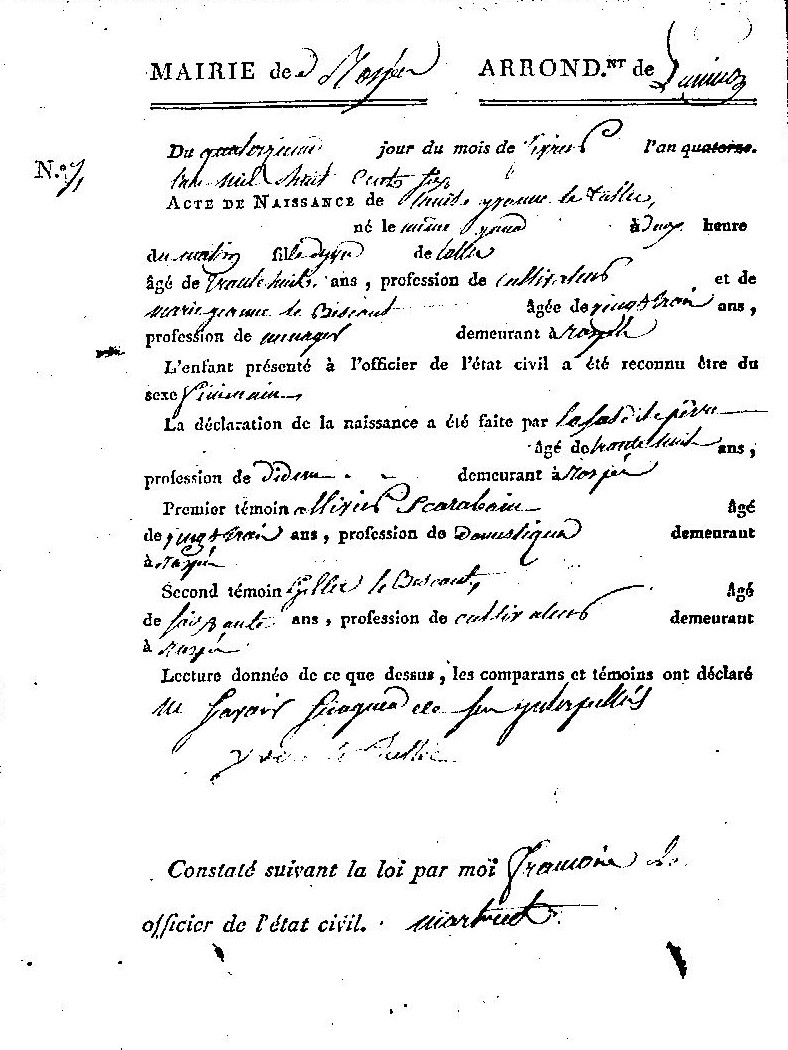 MAIRIE de Rospez ARROND.NT de Lannion
N.° 7,
Du quatorzieme jour du mois de fevrier l'an quatorze.
lan mil huit Cents Six
ACTE DE NAISSANCE de yvonne le tallec,
né le même jour à heure
du matin fille dyvon de tallec
âgé de trante huit ans, profession de cultivateur et de
marie jeanne le Biscout âgée de vingt troi ans,
profession de menager demeurant à rospez
L'enfant présenté à l'officier de l'état civil a été reconnu être du
sexe feminain,
La déclaration de la naissance a été faite par le père
âgé de trante huit ans,
profession de didem demeurant à Rospez
Premier témoin ollivier Scarabain âgé
de vingt troi ans, profession de Domestique demeurant
à Rospez
Second témoin Gilles le Biscout, âgé
de soissante ans, profession de cultivateur demeurant
à Rospez
Lecture donnée de ce que dessus, les comparans et témoins ont déclaré
ne Savoir Signer de ce ynterpellés
yves le tallec
Constaté suivant la loi par moi francois le
officier de l'état civil. martret